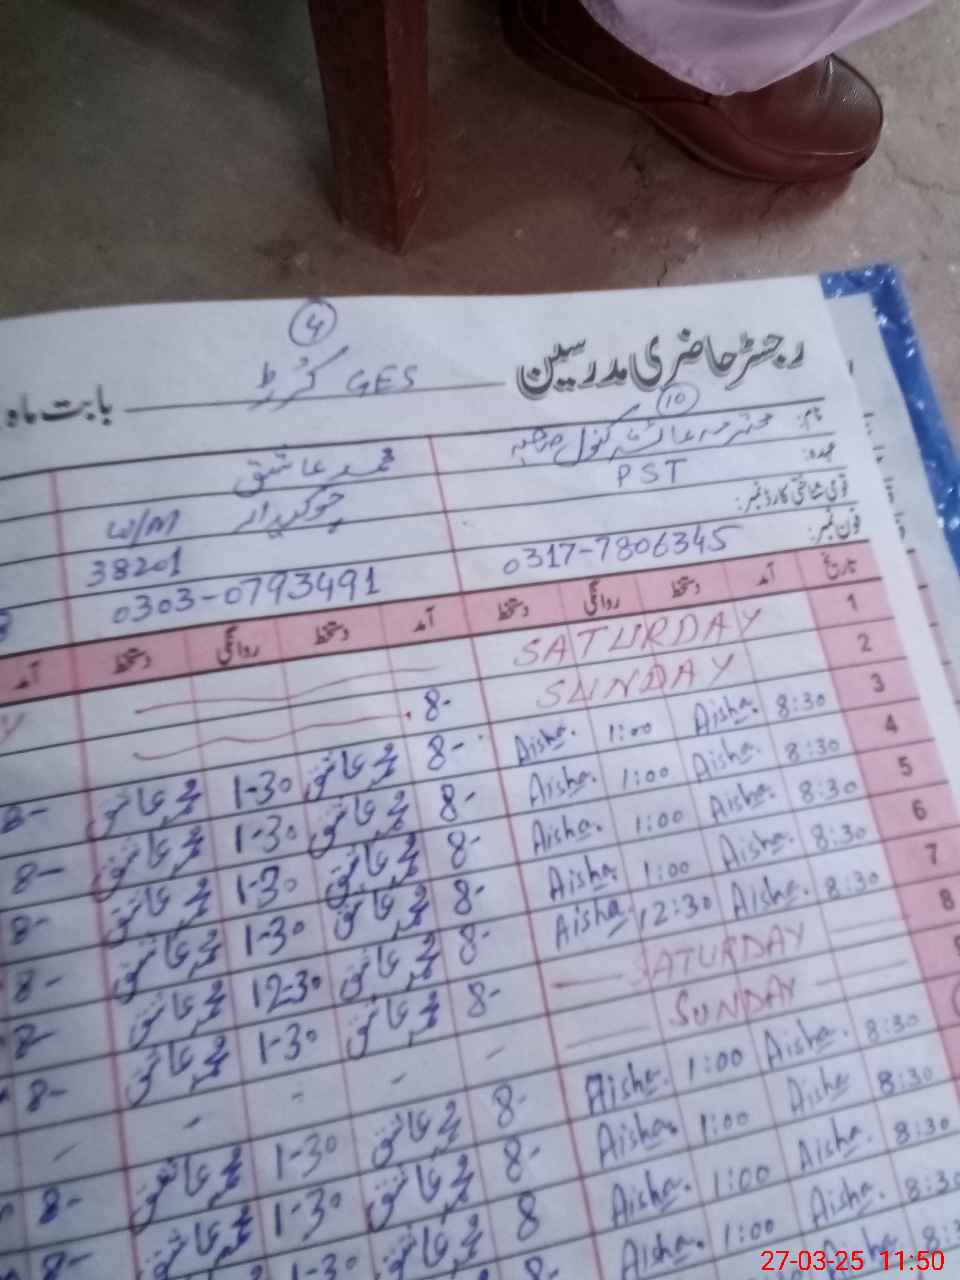 4
رجسٹر حاضری مدرسین GES بابت ماہ
10
نام: محترمہ عائشہ کنول صاحبہ محمد عاشق
عہدہ: PST چوکیدار W/M
قومی شناختی کارڈ نمبر: 38201
فون نمبر: 0317-7806345 0303-0793491
تاریخ آمد دستخط روانگی دستخط آمد دستخط روانگی دستخط آمد
1 SATURDAY
2 SUNDAY 8-
3 8:30 Aisha. 1:00 Aisha. 8- محمد عاشق 1-30 محمد عاشق 8-
4 8:30 Aisha. 1:00 Aisha. 8- محمد عاشق 1-30 محمد عاشق 8-
5 8:30 Aisha. 1:00 Aisha. 8- محمد عاشق 1-30 محمد عاشق 8-
6 8:30 Aisha. 1:00 Aisha. 8- محمد عاشق 1-30 محمد عاشق 8-
7 8:30 Aisha. 12:30 Aisha. 8- محمد عاشق 12-30 محمد عاشق 8-
8 SATURDAY 8- محمد عاشق 1-30 محمد عاشق 8-
SUNDAY - - - - -
8:30 Aisha. 1:00 Aisha. 8- محمد عاشق 1-30 محمد عاشق 8-
8:30 Aisha. 1:00 Aisha. 8- محمد عاشق 1-30 محمد عاشق 8-
8:30 Aisha. 1:00 Aisha. 8 محمد عاشق 1-30
8:30 Aisha. 1:00 Aisha.
27-03-25 11:50